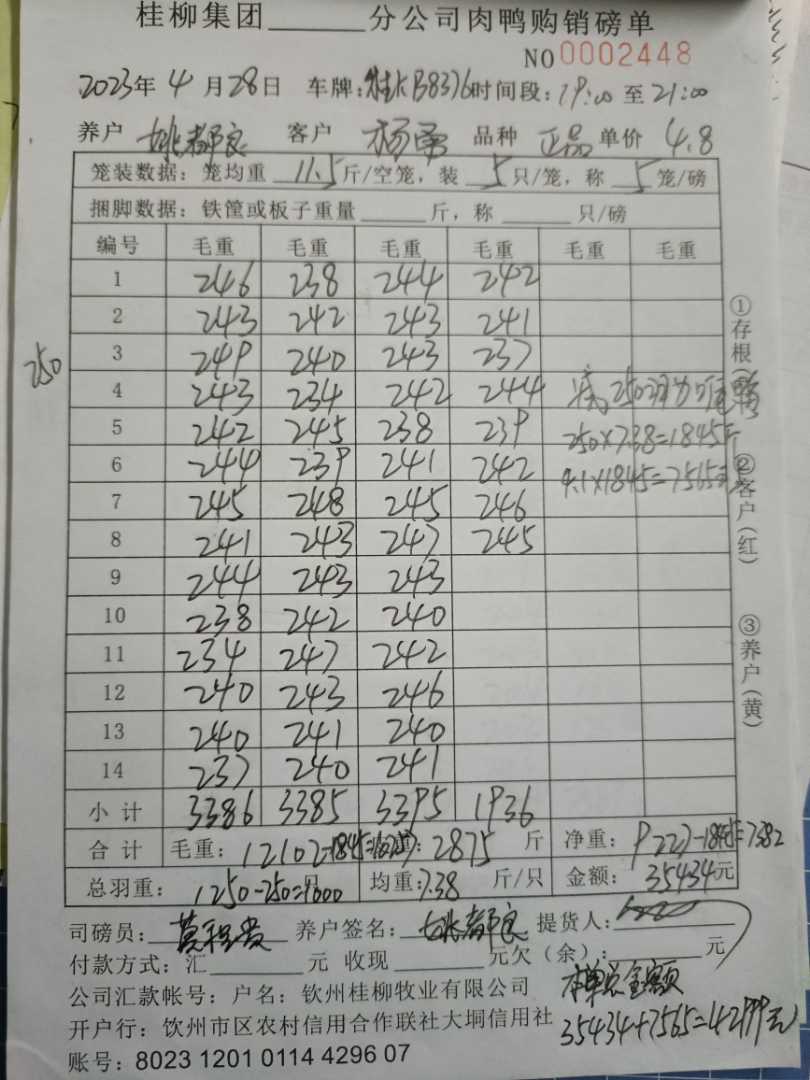 桂柳集团 分公司肉鸭购销磅单
NO 0002448
2023年 4月28日 车牌:桂KB8376 时间段:19:00 至 21:00
养户 姚都良 客户 杨勇 品种 正品 单价 4.8
笼装数据:笼均重 11.5 斤/空笼,装 5 只/笼,称 5 笼/磅
捆脚数据:铁筐或板子重量 斤,称 只/磅
编号 毛重 毛重 毛重 毛重 毛重 毛重
1 246 238 244 242
2 243 242 243 241
250
3 249 240 243 237
4 243 234 242 244 250
5 242 245 238 239 250×7.38=1845斤
6 244 239 241 242 4.1×1845=7565元
7 245 248 245 246
8 241 243 247 245
9 244 243 243
10 238 242 240
11 234 247 242
12 240 243 246
13 240 241 240
14 237 240 241
小计 3386 3385 3395 1936
合计 毛重:12102-1845= 2875 斤 净重:9227-1845=7382
总羽重:1250-250=1000 均重:7.38 斤/只 金额:35434元
司磅员: 莫程贵 养户签名: 姚都良 提货人:
付款方式:汇 元 收现 元欠(余): 元
公司汇款帐号:户名:钦州桂柳牧业有限公司
本单总金额
开户行:钦州市区农村信用合作联社大垌信用社
35434+7565=42999元
账号:8023 1201 0114 4296 07
①存根
②客户(红)
③养户(黄)